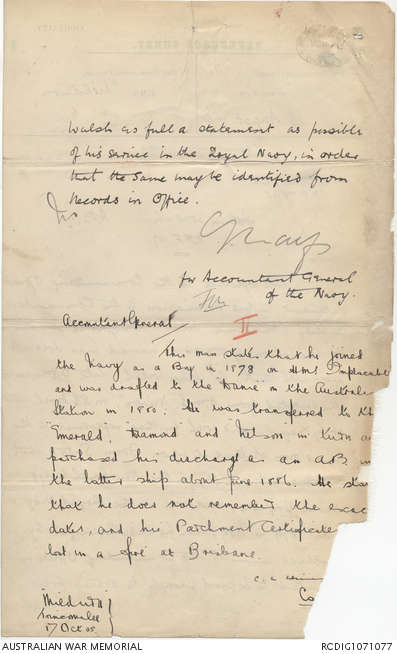 Walsh as full a statement as possible
of his service in the Royal Navy, in order
that the same may be identified from
records in Office.
for Accountant General
of the Navy.
Accountant General
II
This man states that he joined
the Navy as a Boy in 1878 on HMS Implacable
and was drafted to the "Danae" on the Australia
Station in 1880. He was transferred to th
"Emerald", Diamond and Nelson in turn a
purchased his discharge as an AB
the latter ship about June 1886. He sta
that he does not remember the exac
dates, and his Parchment Certificate
lost in a fire at Brisbane.
Co
"Mildura"
Trincomalee
17 Oct 05
AUSTRALIAN WAR MEMORIAL
RCDIG1071077